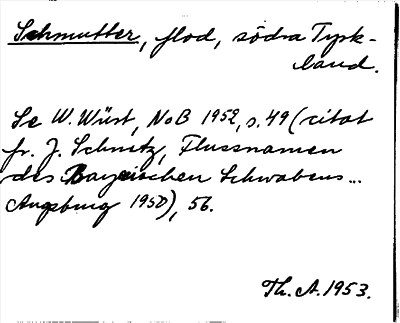 Schmutter, flod, södra Tysk-
land.
Se W. Wüst, NoB 1952, s. 49 (citat
fr. J. Schnetz, Flussnamen
des Bayrischen Schwabens...
Augsburg 1950), 56.
Th. A. 1953.